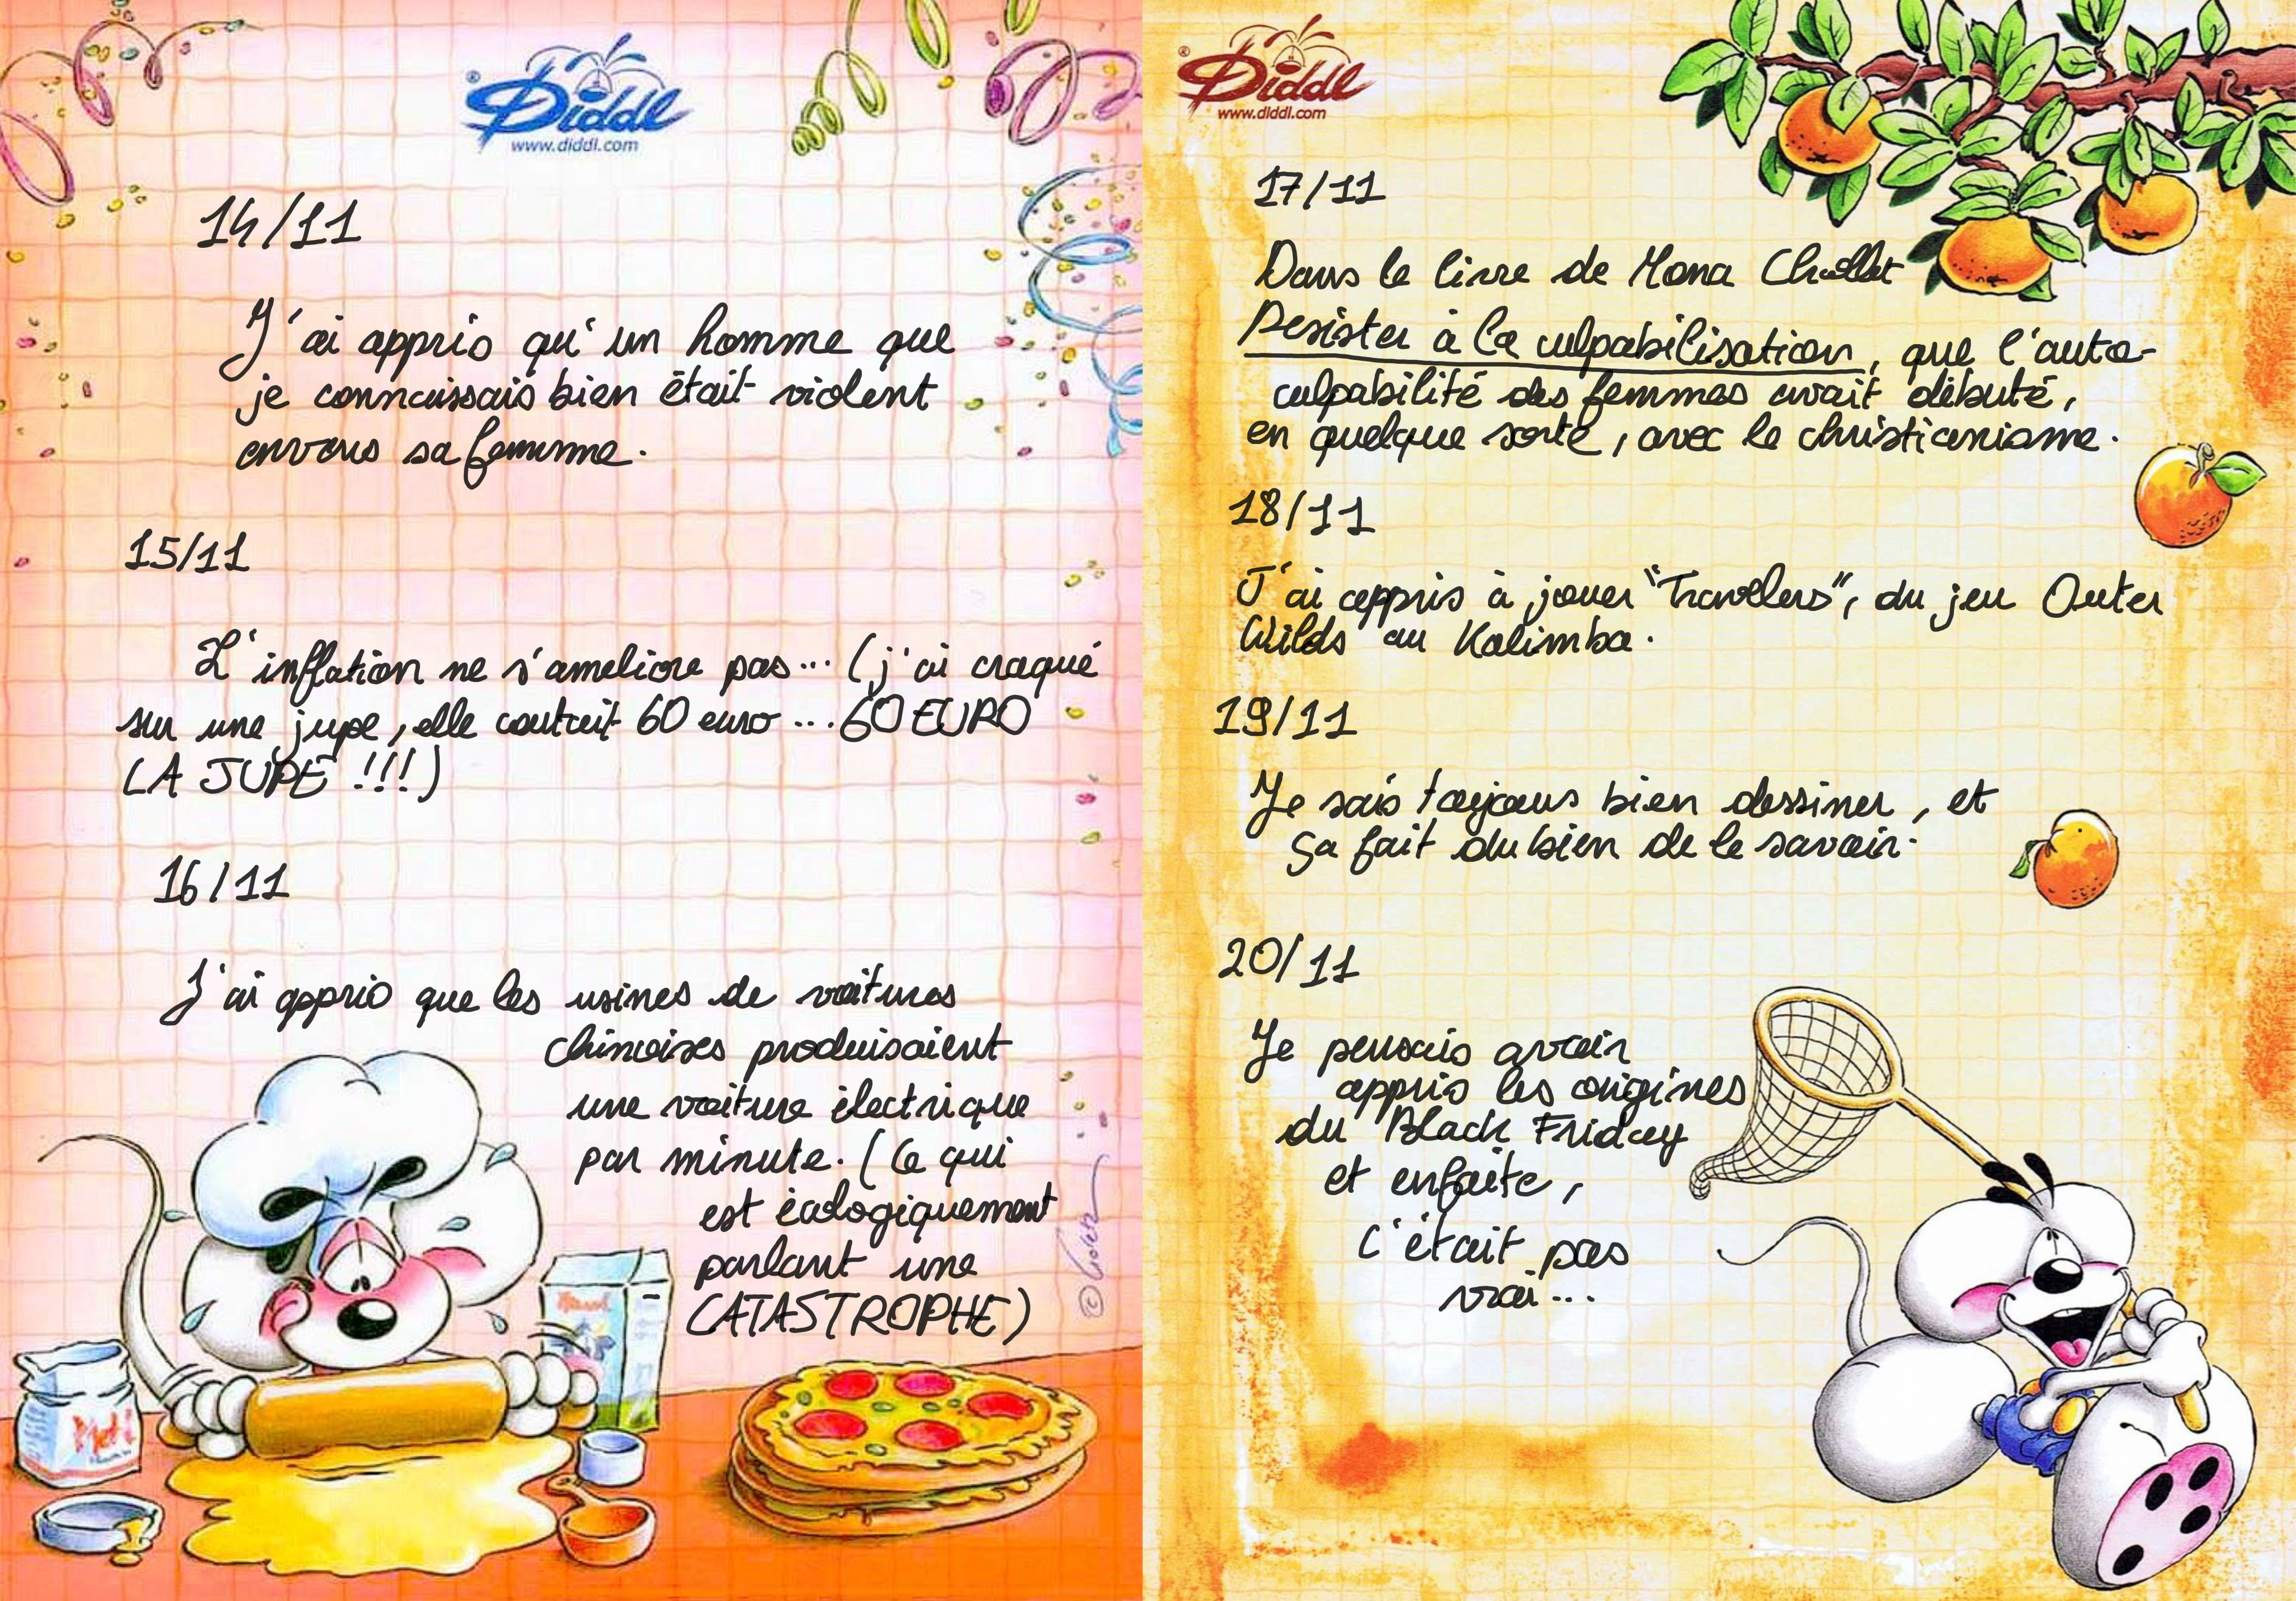 Diddl
www.diddl.com
14/11
J'ai appris qu'un homme que
je connaissais bien était violent
envers sa femme.
15/11
L'inflation ne s'ameliore pas... (j'ai craqué
sur une jupe, elle coutait 60 euro ... 60 EURO
LA JUPE !!!)
16/11
J'ai appris que les usines de voitures
chinoises produisaient
une voiture électrique
par minute. (Ce qui
est écologiquement
parlant une
CATASTROPHE)
Mehl
®Diddl
www.diddl.com
17/11
Dans le livre de Mona Chollet
Resister à la culpabilisation, que l'auto-
culpabilité des femmes avait débuté,
en quelque sorte, avec le christianisme.
18/11
J'ai appris à jouer "Travelers", du jeu Outer
Wilds au Kalimba.
19/11
Je sais toujours bien dessiner, et
ça fait du bien de le savoir.
20/11
Je pensais avoir
appris les origines
du Black Friday
et enfaite,
c'était pas
vrai...